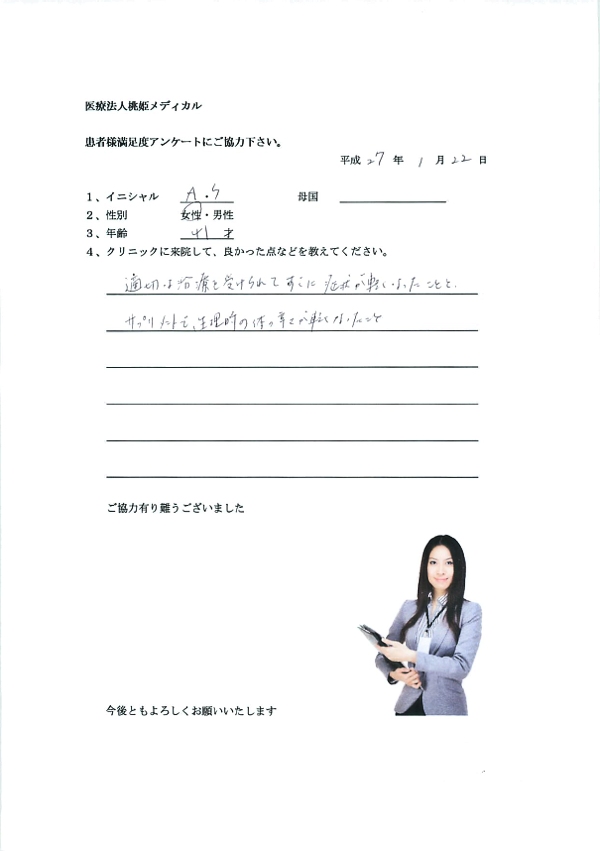 医療法人桃姫メディカル
患者様満足度アンケートにご協力下さい。
平成 27 年 1 月 22 日
1、イニシャル A・S 母国
2、性別 女性・男性
3、年齢 41 才
4、クリニックに来院して、良かった点などを教えてください。
適切な治療を受けられてすぐに 症状が軽くなったことと、
サプリメントで、生理的の体の辛さが軽くなったこと
ご協力有り難うございました
今後ともよろしくお願いいたします